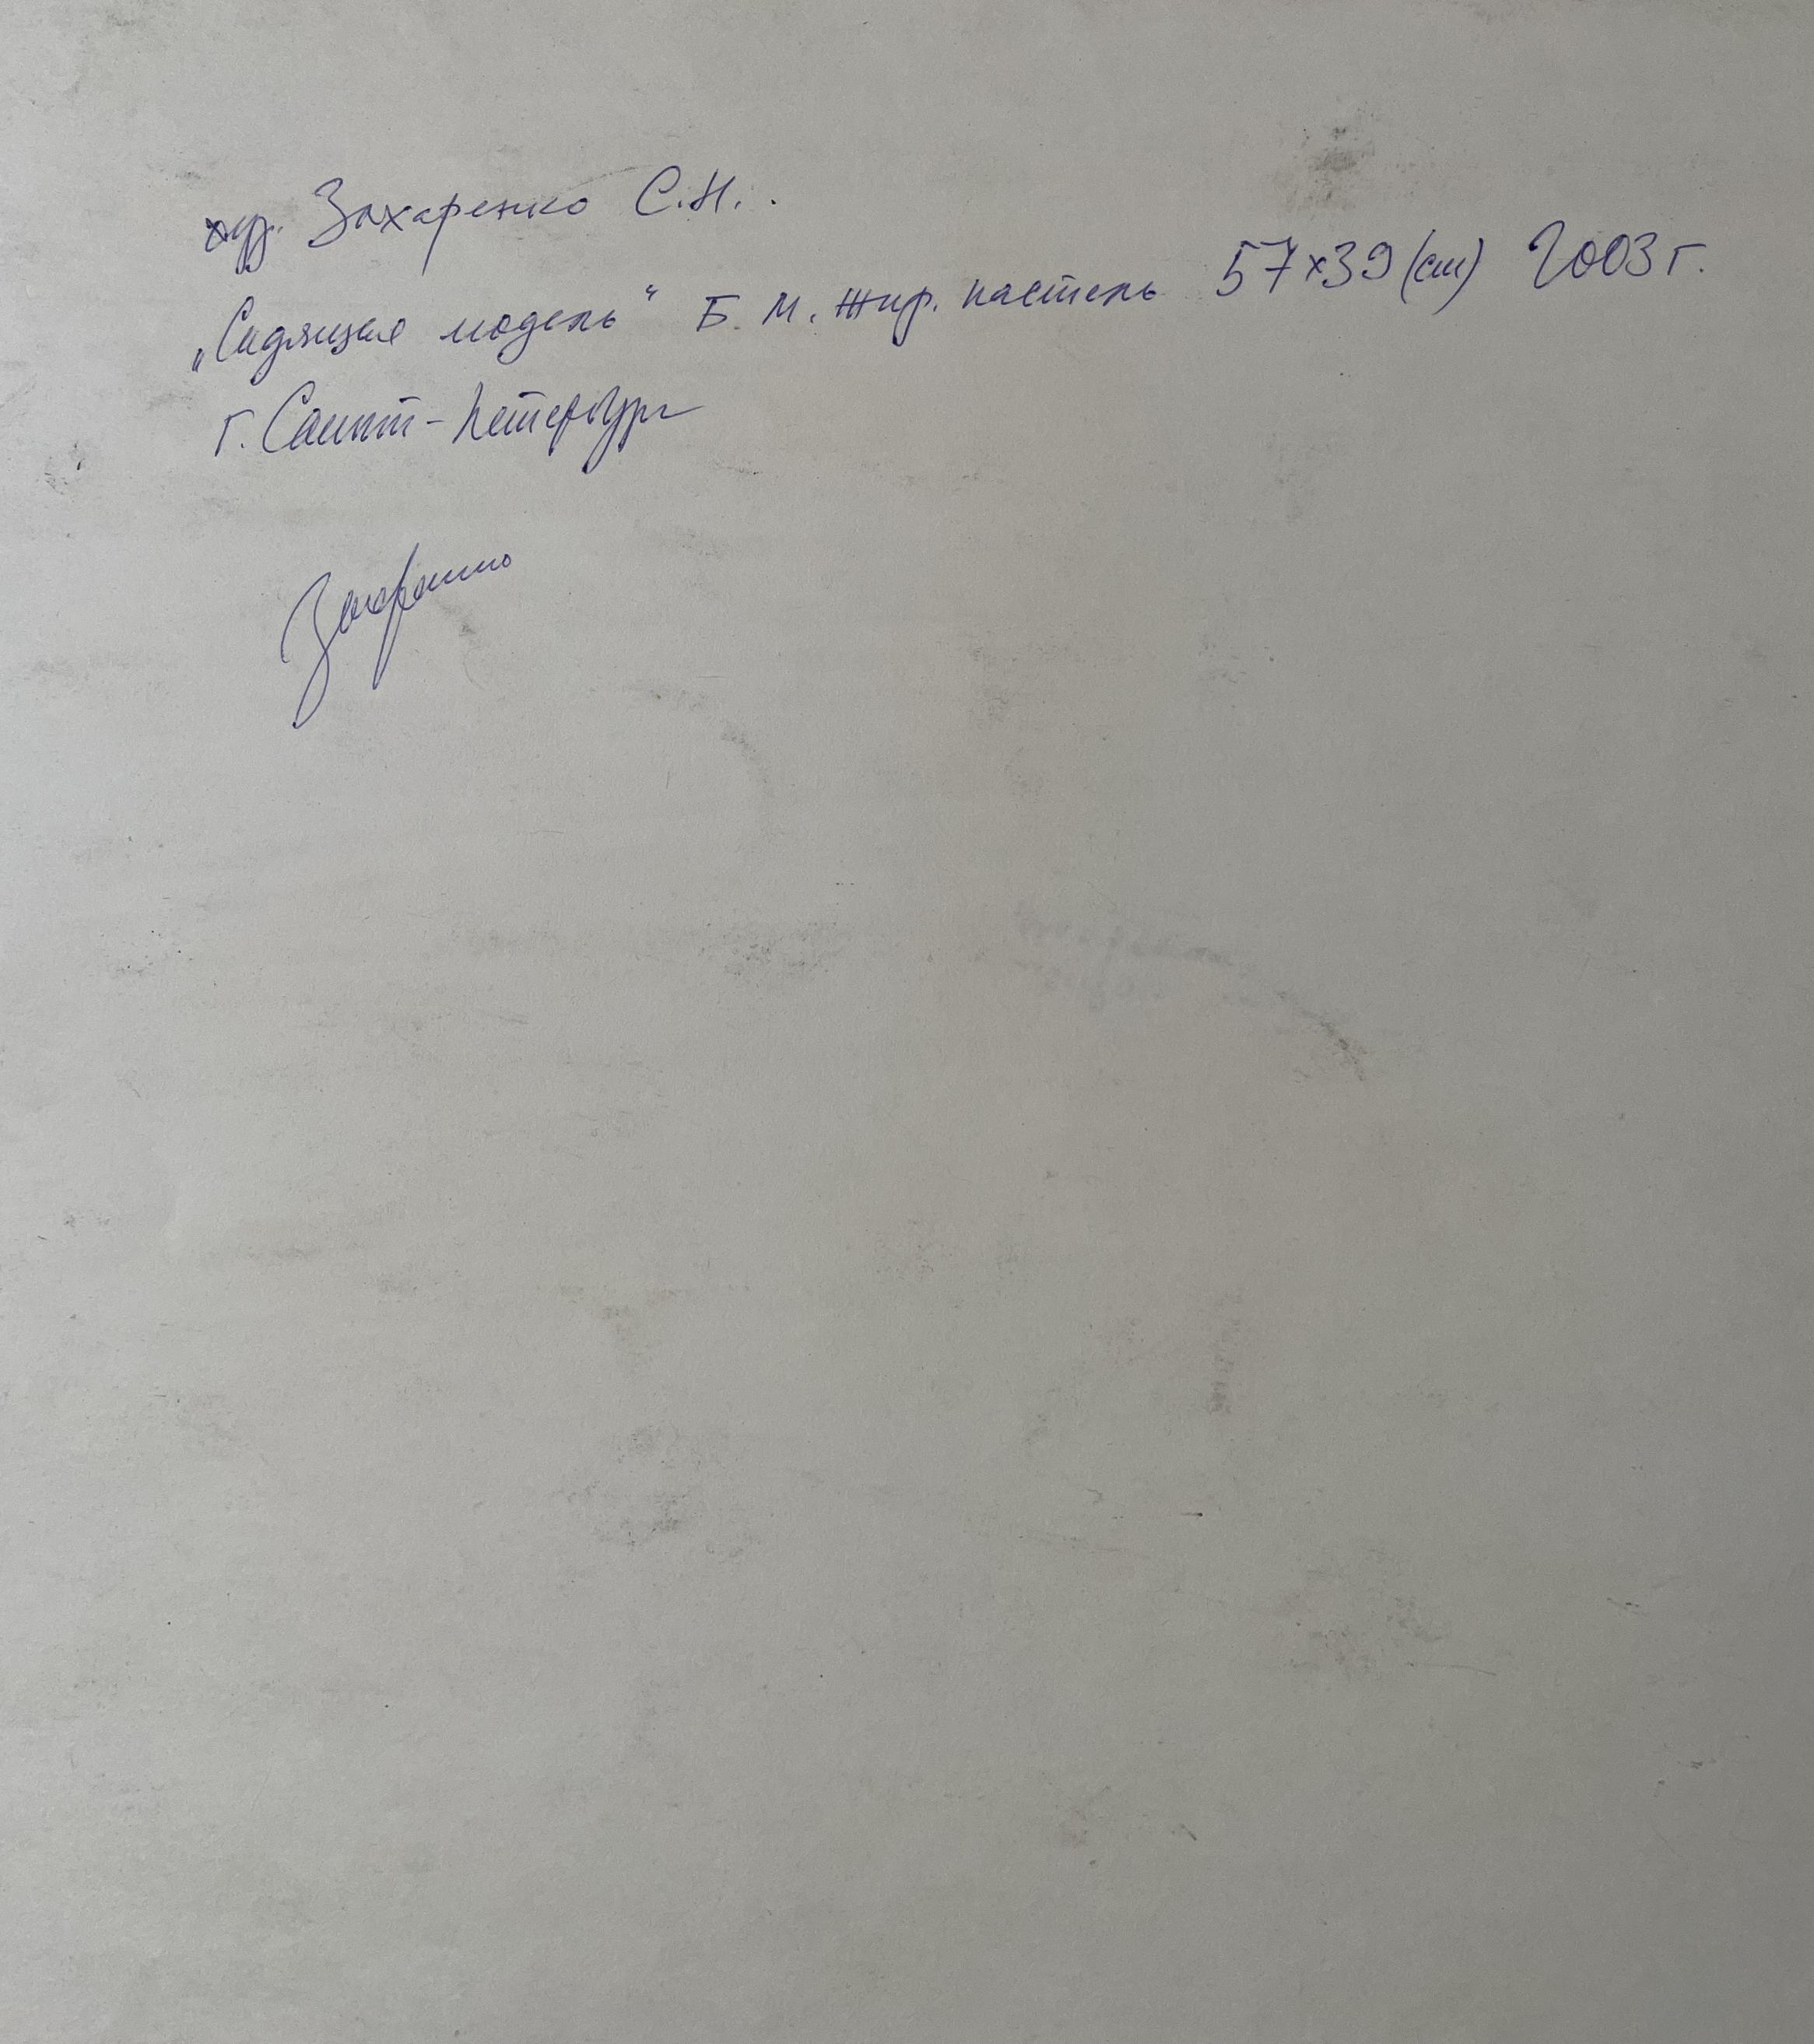 худ. Захаренко С.Н.
„Сидящая модель“ Б. м. жир. пастель 57x39 (см) 2003 г.
г. Санкт-Петербург
Захаренко